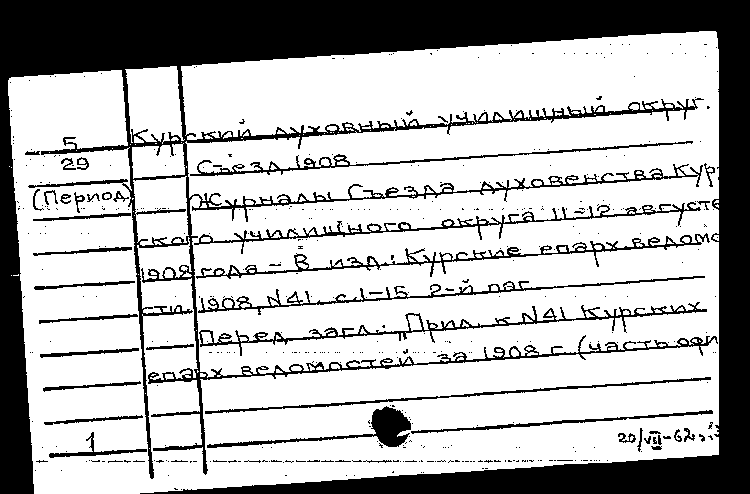 5
29
(Период)
Курский духовный училищный округ.
Съезд, 1908
Журналы Съезда духовенства Кур
ского училищного округа 11-12 август
1908 года - В изд.: Курские епарх. ведомо
сти, 1908, N41, с. 1-15 2-й паг.
Перед загл.: „Прил. к N41 Курских
епарх ведомостей за 1908 г. (часть офи
1
20/VII-62